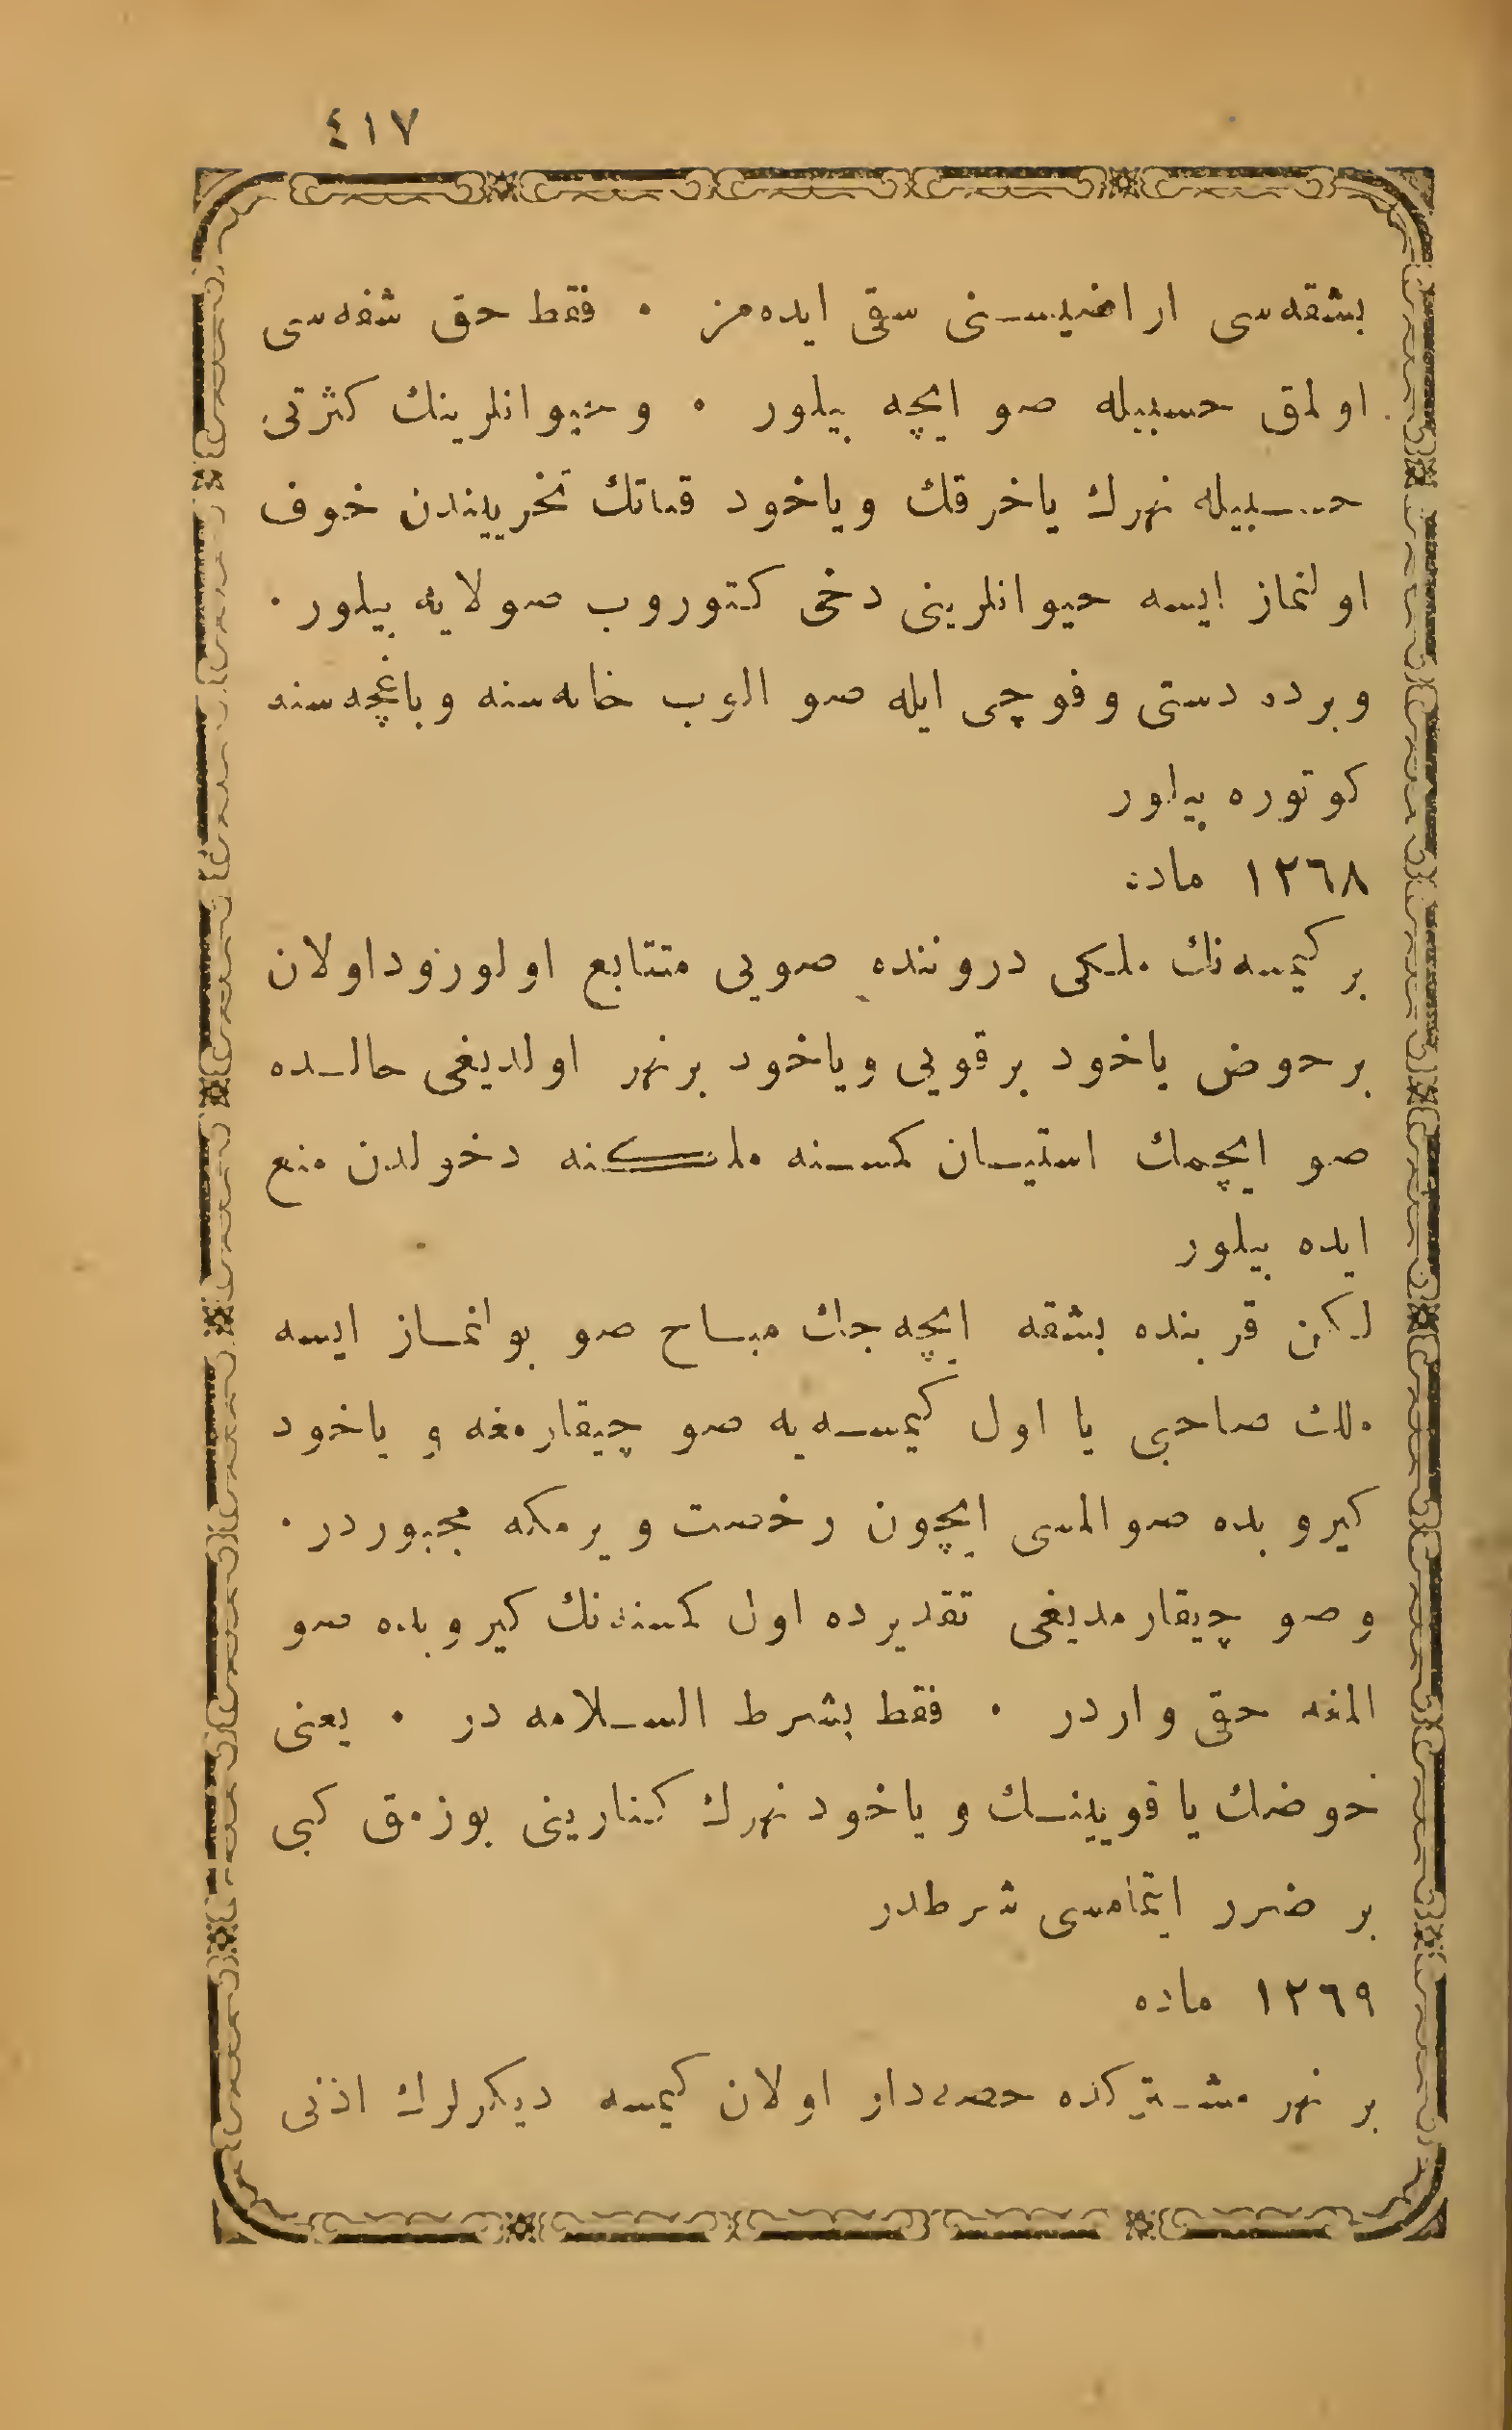 ٤١٧
بشقه‌سی اراضیسنی سقی ایده‌مز ۰ فقط حق شفه‌سی
اولمق حسبیله صو ایچه بیلور ۰ وحیوانلرینك كثرتی
حسبیله نهرك یاخرقك ویاخود قناتك تخریبندن خوف
اولنماز ایسه حیوانلرینی دخی كتوروب صولایه بیلور ۰
وبرده دستی وفوچی ایله صو الوب خانه‌سنه وباغچه‌سنه
كوتوره بیلور
١٢٦٨ ماده
بر كیمسه‌نك ملكی دروننده صویی متتابع اولورزود اولان
بر حوض یاخود بر قویی ویاخود بر نهر اولدیغی حالده
صو ایچمك استیان كمسنه ملكنه دخولدن منع
ایده بیلور
لكن قربنده بشقه ایچه‌جك مباح صو بولنماز ایسه
ملك صاحبی یا اول كیمسه‌یه صو چیقارمغه و یاخود
كیروبده صو المسی ایچون رخصت ویرمكه مجبوردر ۰
وصو چیقارمدیغی تقدیرده اول كمسنه‌نك كیروبده صو
المغه حقی واردر ۰ فقط بشرط السلامه در ۰ یعنی
خوضك یا قویینك و یاخود نهرك كنارینی بوزمق كبی
بر ضرر ایتمامسی شرطدر
١٢٦٩ ماده
بر نهر مشتركده حصه‌دار اولان كیمسه دیكرلرك اذنی